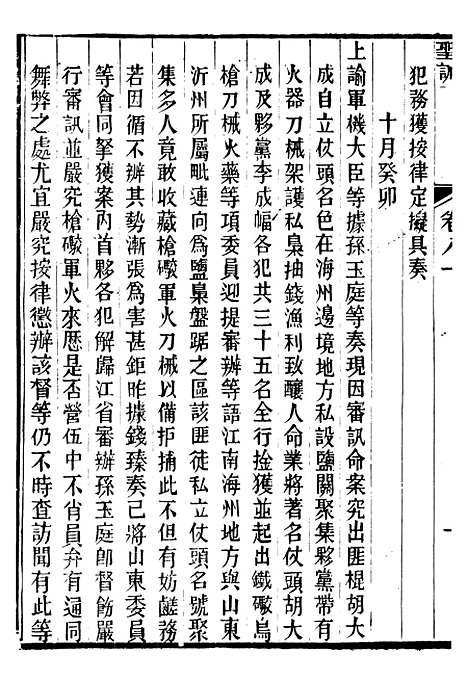 聖訓
卷八十一
犯務獲按律定擬具奏
十月癸卯
上諭軍機大臣等據孫玉庭等奏現因審訊命案究出匪棍胡大
成自立仗頭名色在海州邊境地方私設鹽關聚集夥黨帶有
火器刀械架護私梟抽錢漁利致釀人命業將著名仗頭胡大
成及夥黨李成幅各犯共三十五名全行拴獲並起出鐵礮鳥
槍刀械火藥等項委員迎提審辦等語江南海州地方與山東
沂州所屬毗連向爲鹽梟盤踞之區該匪徒私立仗頭名號聚
集多人竟敢收藏槍礮軍火刀械以備拒捕此不但有妨鹺務
若因循不辦其勢漸張爲害甚鉅昨據錢臻奏已將山東委員
等會同拏獲案內首夥各犯解歸江省審辦孫玉庭卽督飭嚴
行審訊並嚴究槍礮軍火來歷是否營伍中不肖員弁有通同
舞弊之處尤宜嚴究按律懲辦該督等仍不時查訪聞有此等